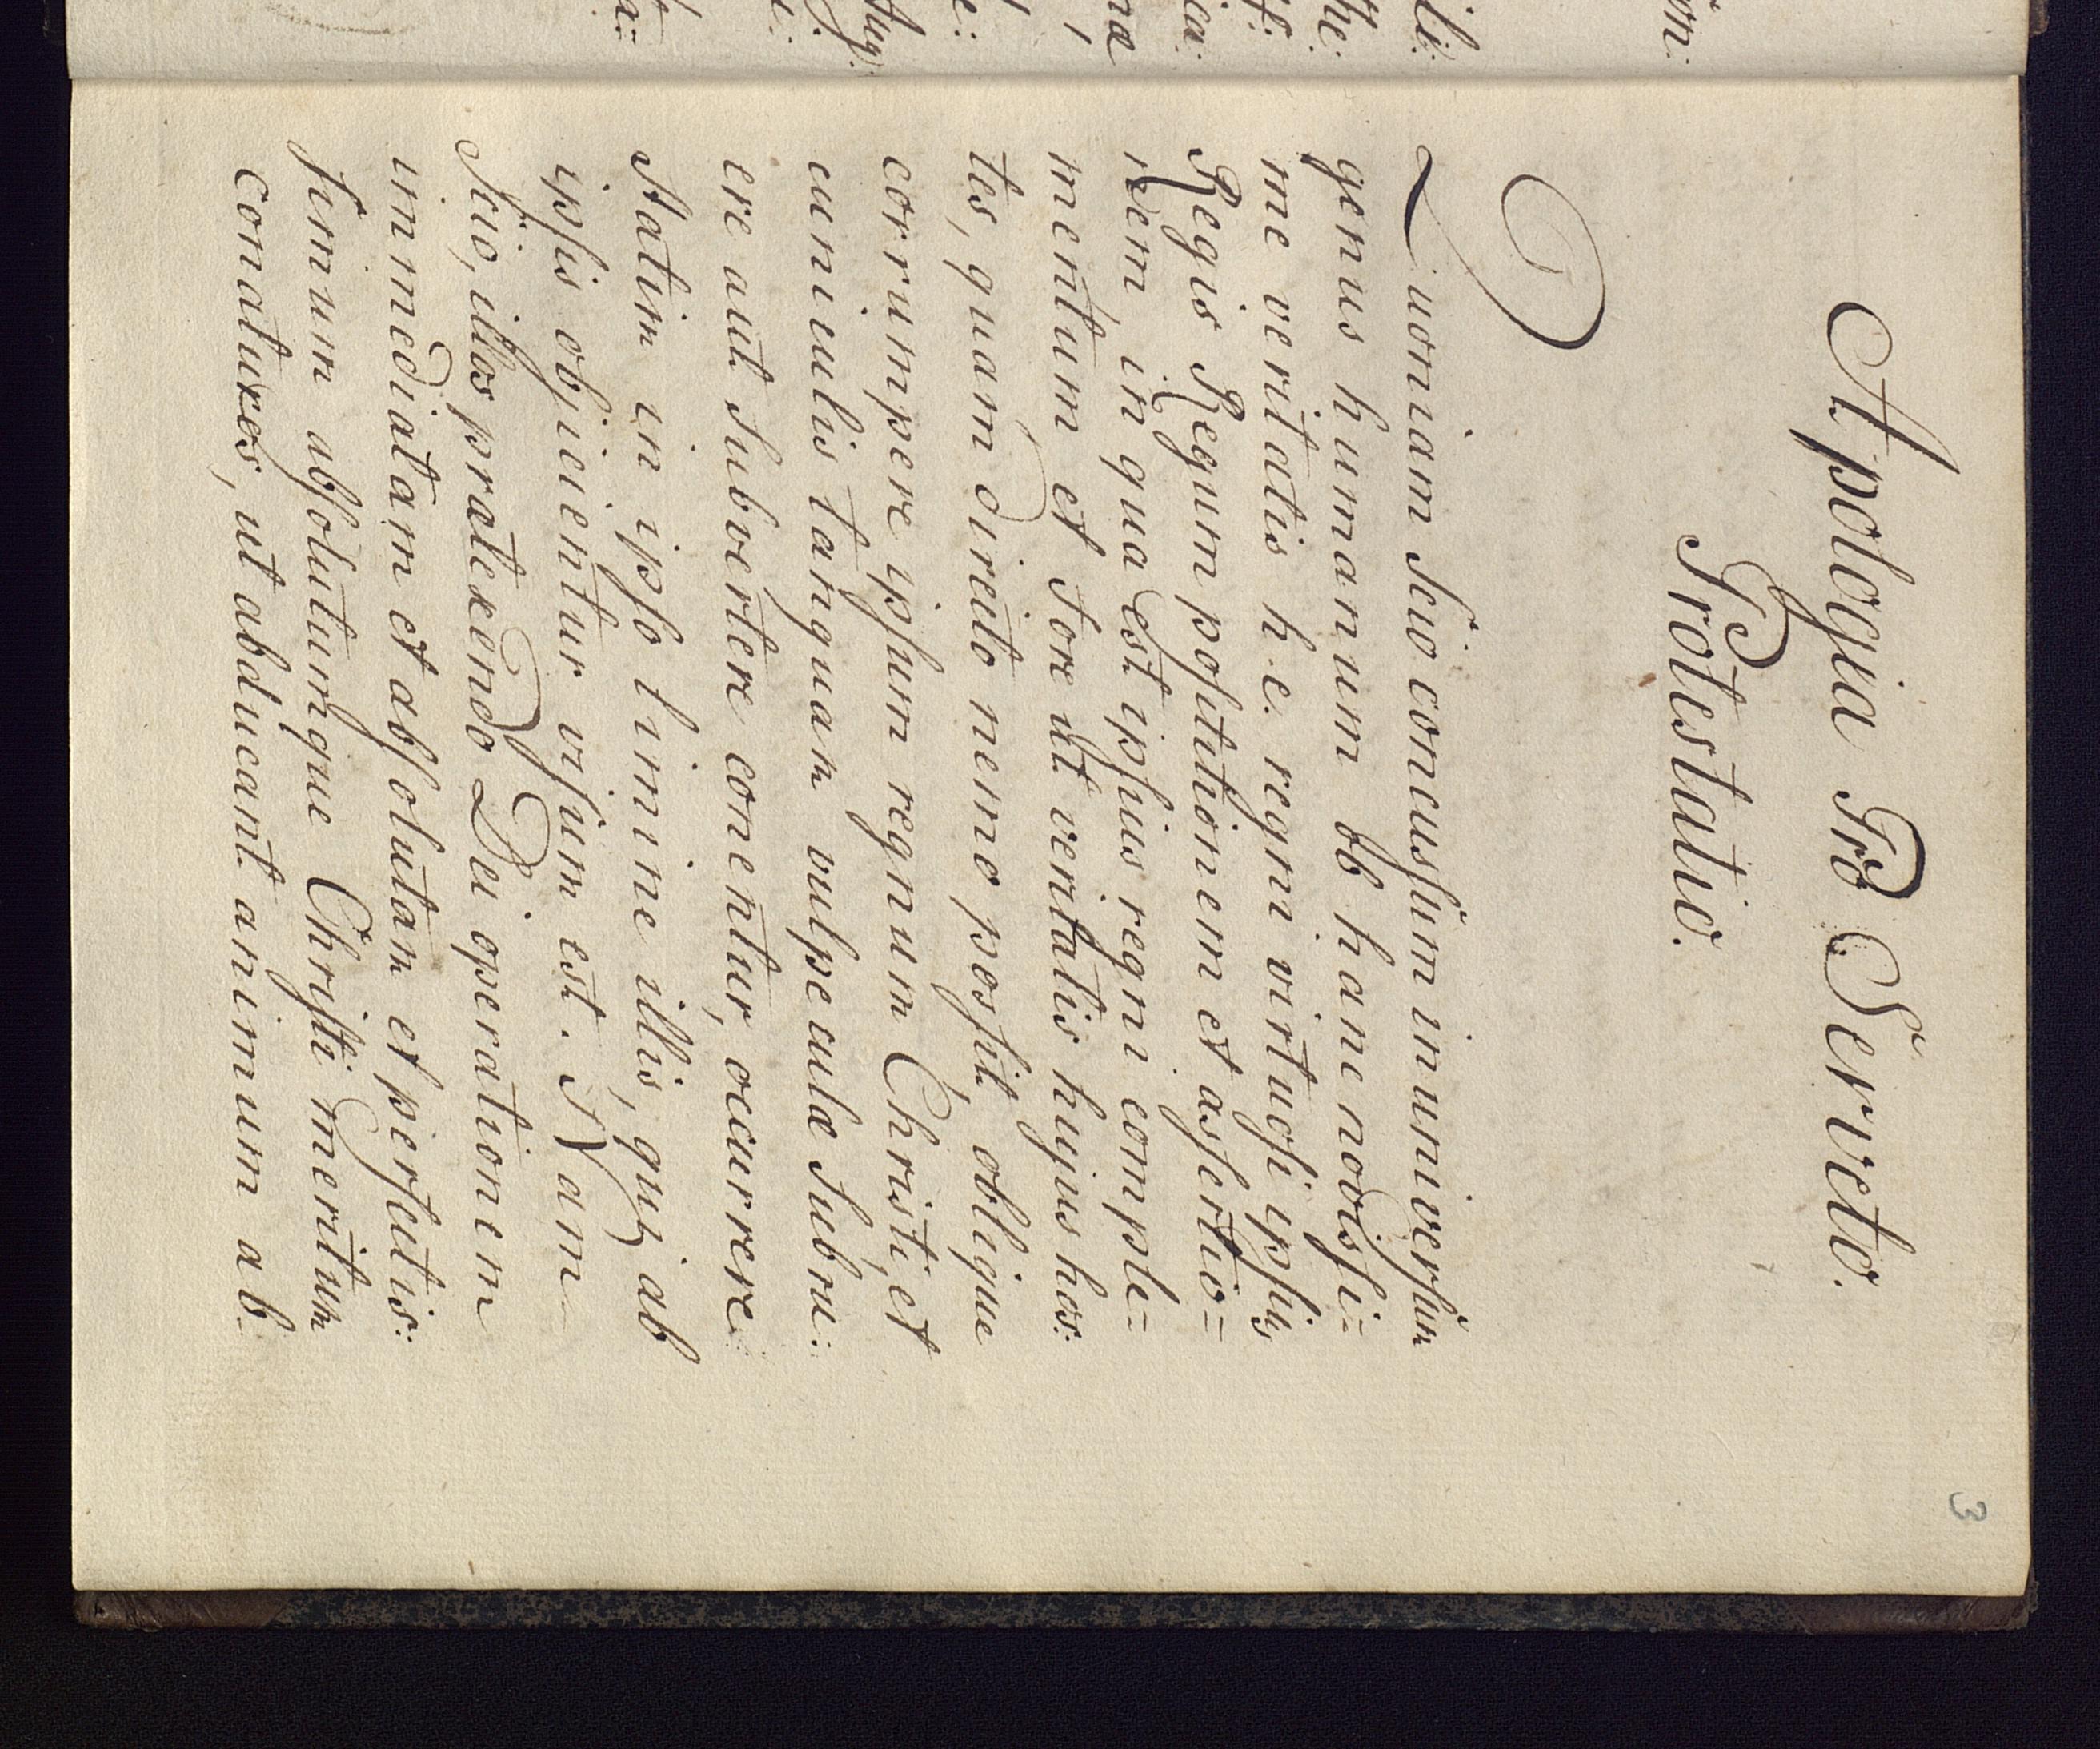 3
Apologia Pro Serveto.
Protestatio.
Quoniam scio concussum iri universum
genus humanum ob hanc novissi=
me veritatis h. e. regni virtuosi ipsius
Regis Regum positionem et assertio=
nem in qua est ipsius regni comple=
mentum et fore ut veritatis hujus hos:
tes, quam directo nemo possit, oblique
corrumpere ipsum regnum Christi, et
cuniculis tanquam vulpeculæ subru:
ere aut subvertere conentur, occurrere
statim in ipso limine illis, quæ ab
ipsis objicientur visum est. Nam
scio, illos prætexendo Dei operationem
immediatam et absolutam et perfectis:
simum absolutumque Christi meritum
conaturos, ut abducant animum ab